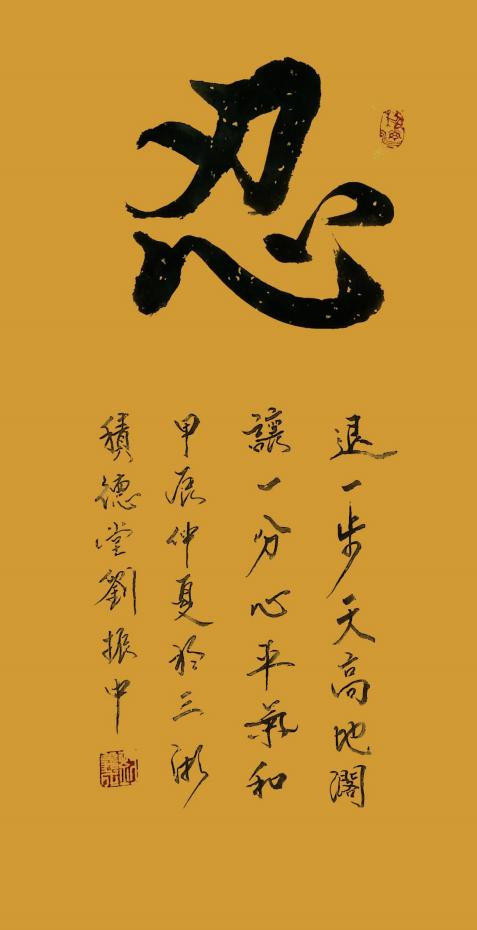 忍
退一步天高地濶
讓一分心平氣和
甲辰仲夏於三
積德堂劉振中